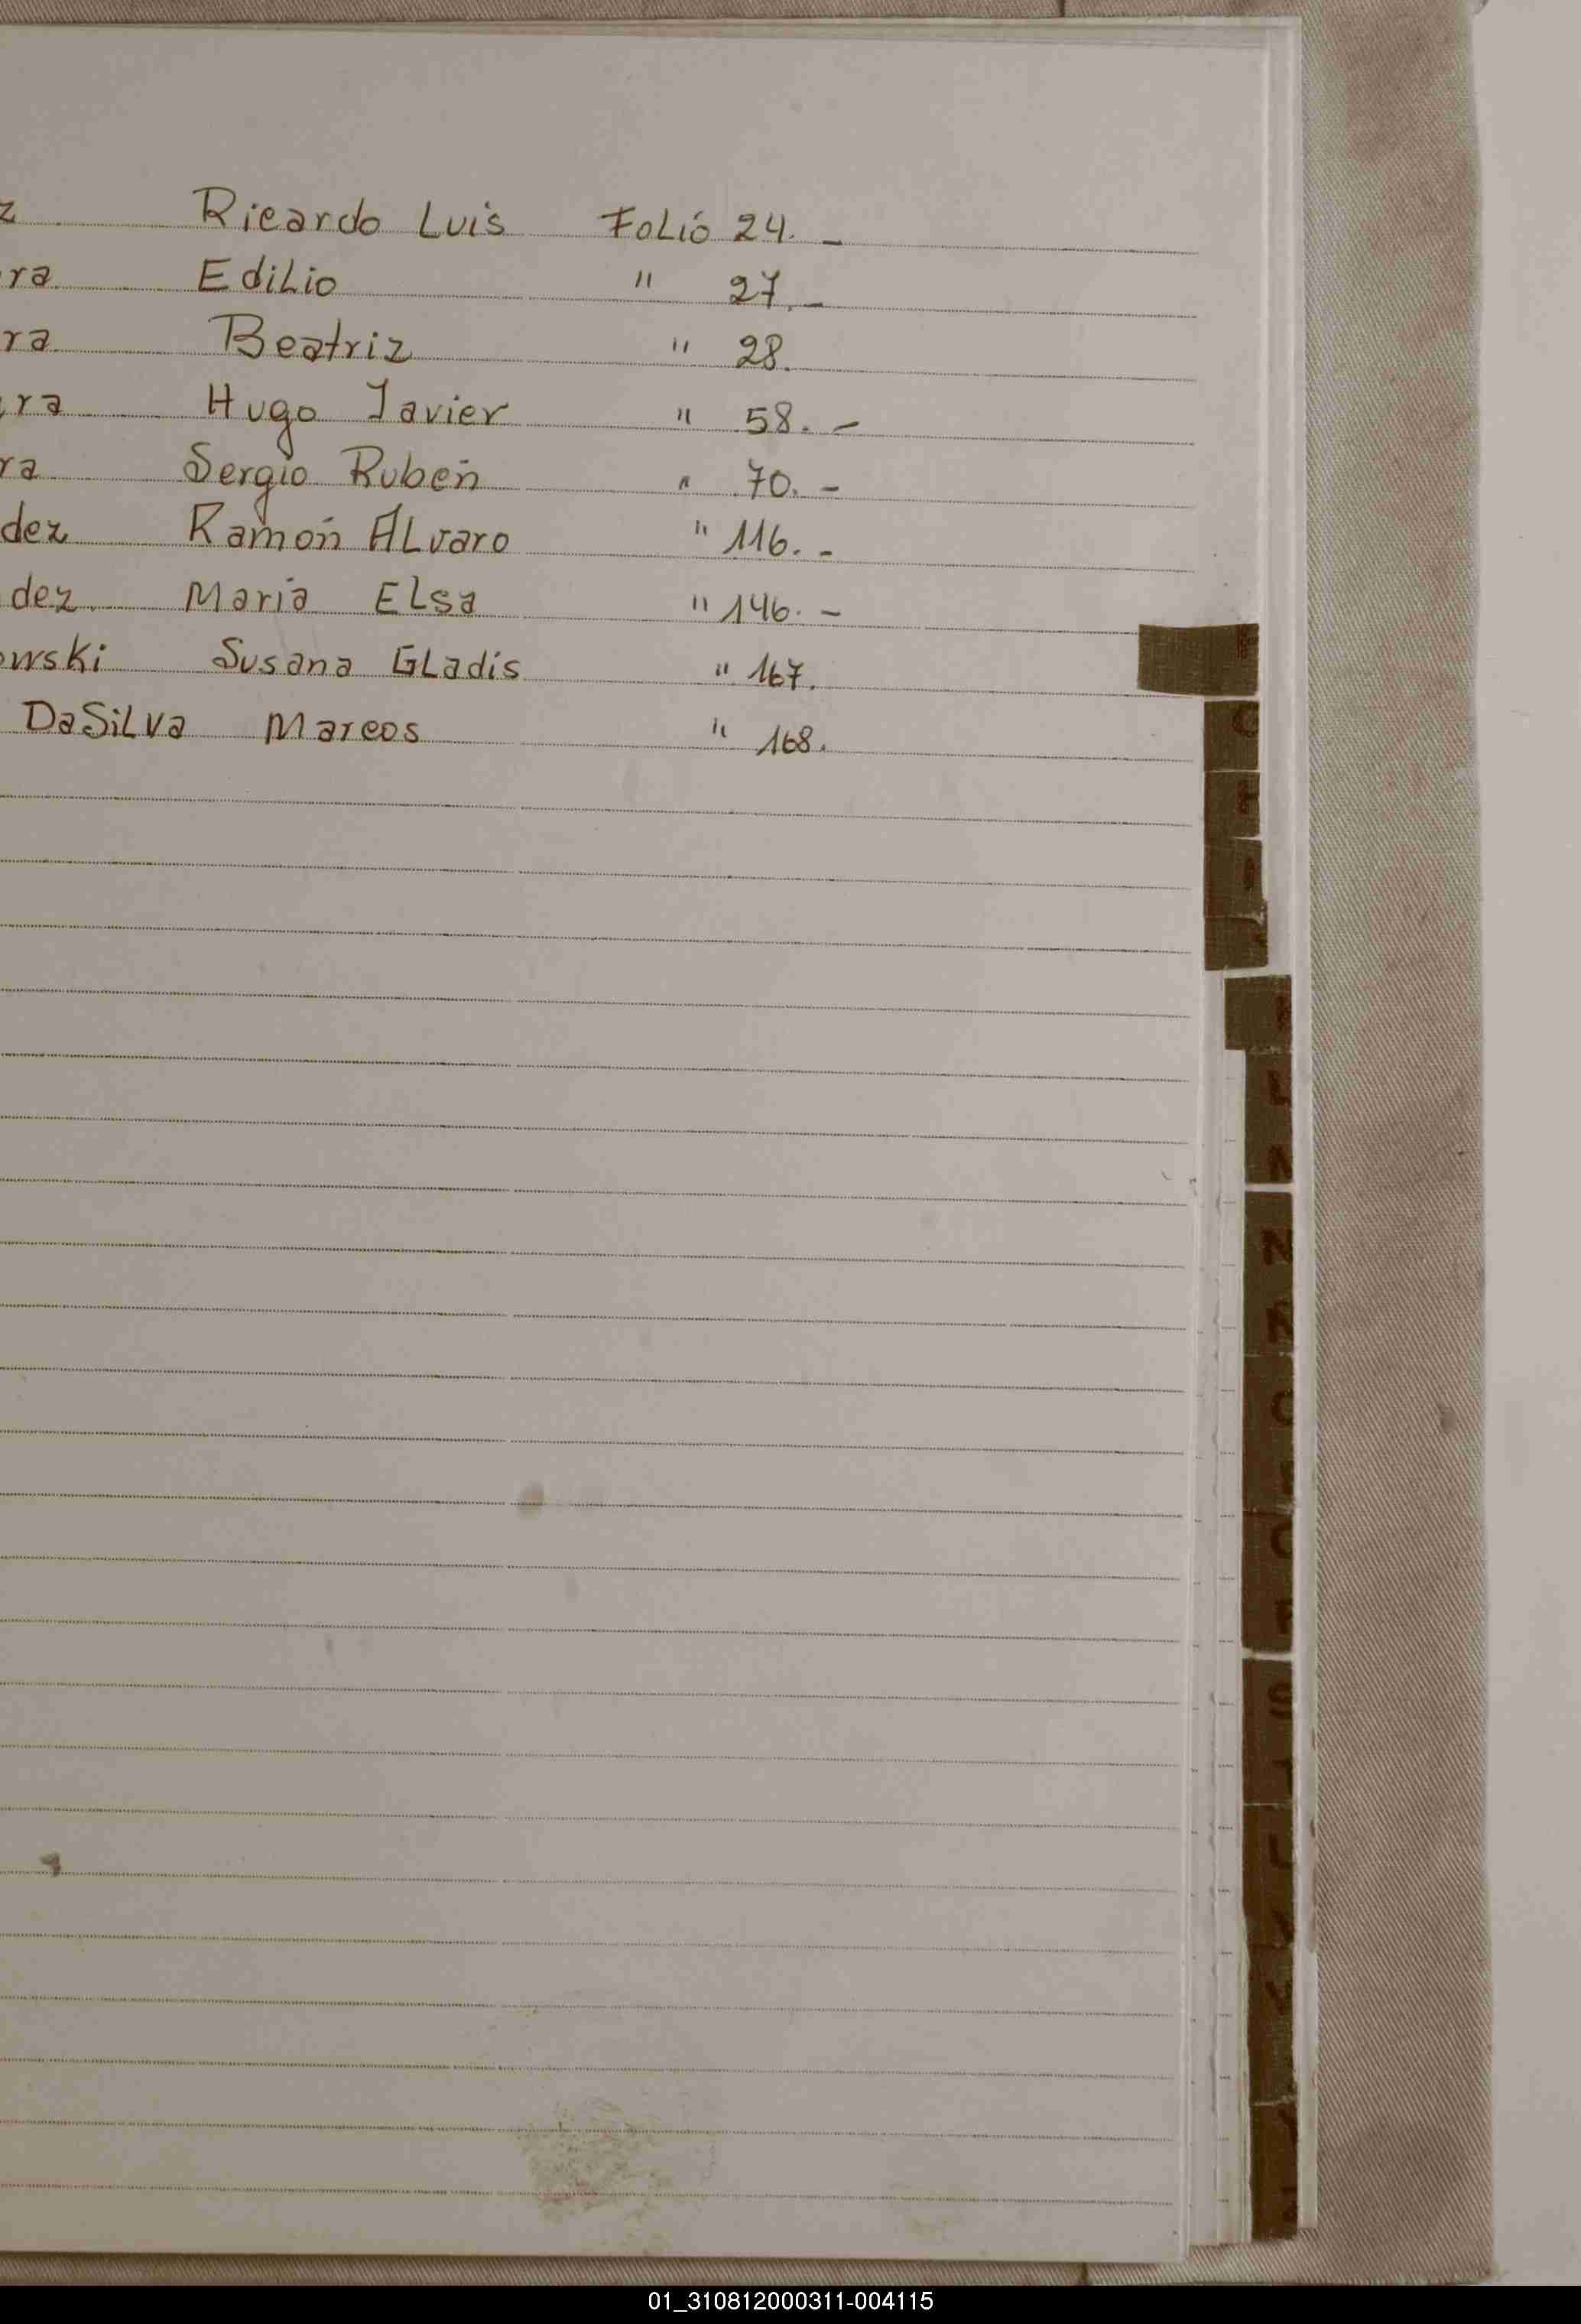 z Ricardo Luis Folio 24. -
ra Edilio " 27. -
ra Beatriz " 28.
ra Hugo Javier " 58. -
ra Sergio Rubén " 70. -
dez Ramón Alvaro " 116. -
dez Maria Elsa " 146. -
owski Susana Gladis " 167.
DaSilva Marcos " 168.
L
N
S
01_310812000311-004115